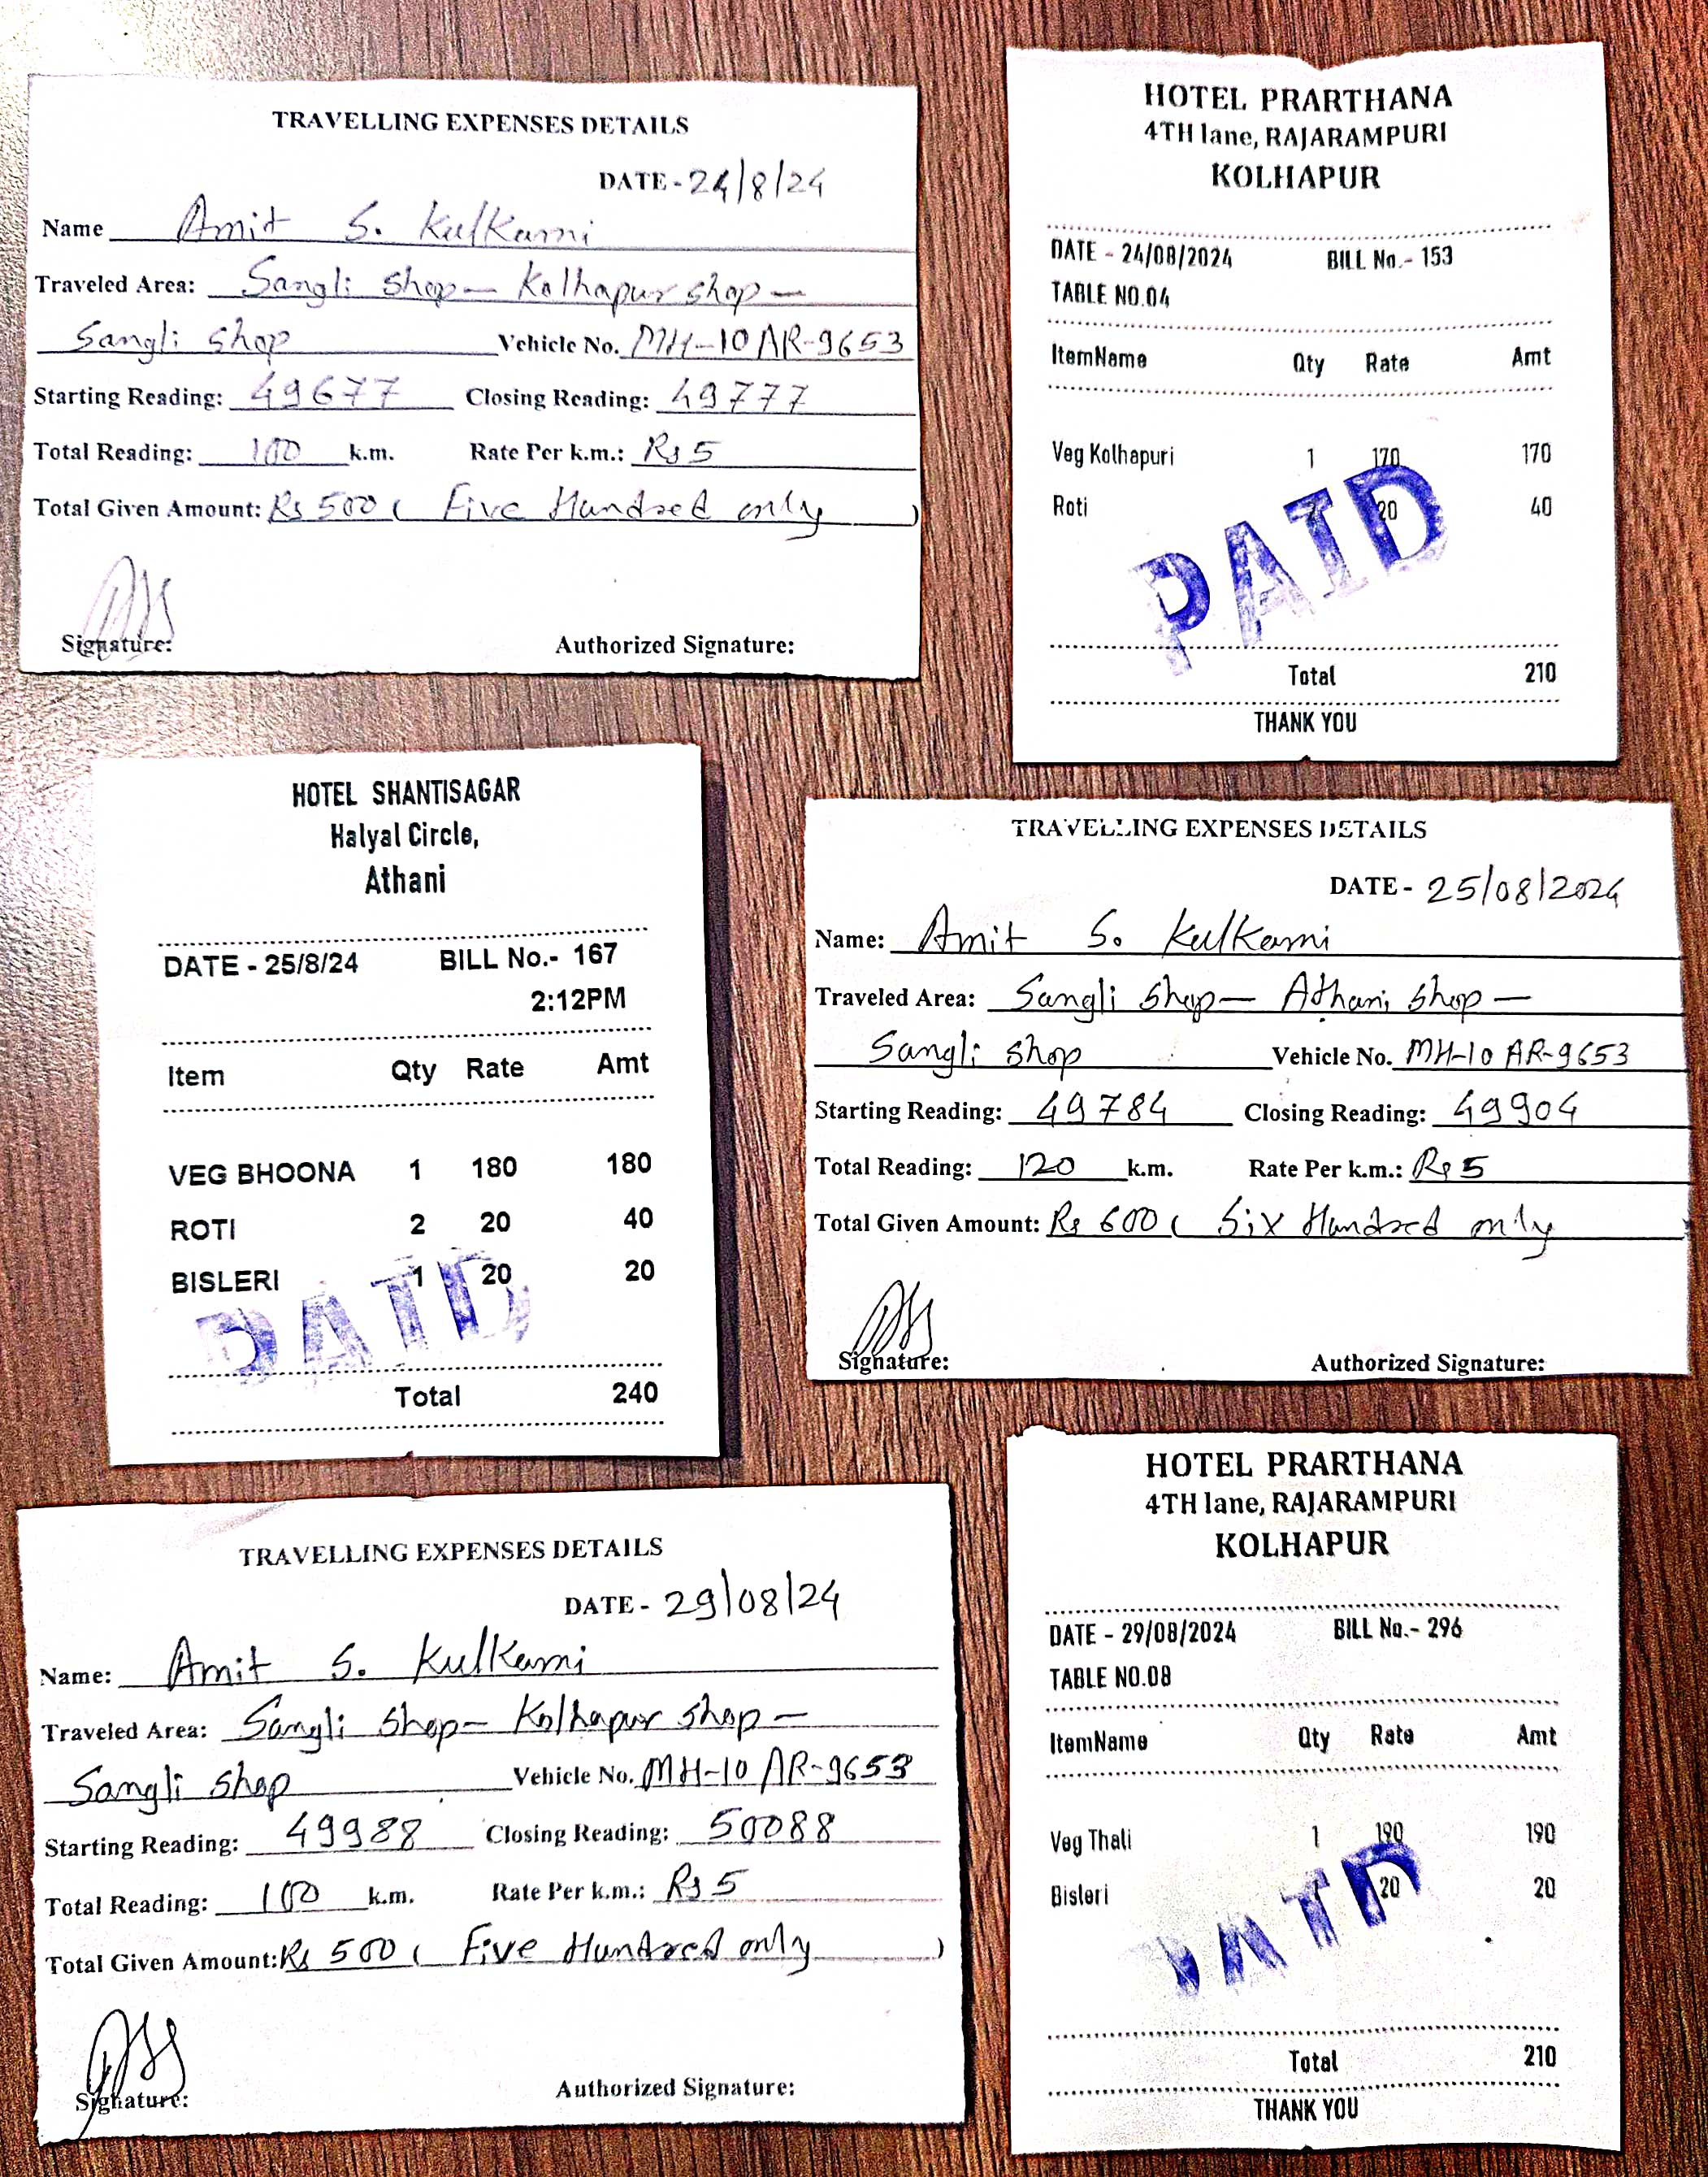 TRAVELLING EXPENSES DETAILS
DATE - 24/8/24
Name Amit S. Kulkarni
Traveled Area: Sangli shop - Kolhapur shop -
Sangli shop Vehicle No. MH-10 AR-9653
Starting Reading: 49677 Closing Reading: 49777
Total Reading: 100 k.m. Rate Per k.m.: Rs 5
Total Given Amount: Rs 500 ( Five Hundred only )
Signature: Authorized Signature:
HOTEL PRARTHANA
4TH lane, RAJARAMPURI
KOLHAPUR
DATE - 24/08/2024 BILL No.- 153
TABLE NO.04
ItemName Qty Rate Amt
Veg Kolhapuri 1 170 170
Roti 2 20 40
PAID
Total 210
THANK YOU
HOTEL SHANTISAGAR
Halyal Circle,
Athani
DATE - 25/8/24 BILL No.- 167
2:12PM
Item Qty Rate Amt
VEG BHOONA 1 180 180
ROTI 2 20 40
BISLERI 1 20 20
PAID
Total 240
TRAVELLING EXPENSES DETAILS
DATE - 25/08/2024
Name: Amit S. Kulkarni
Traveled Area: Sangli shop - Athani shop -
Sangli shop Vehicle No. MH-10 AR-9653
Starting Reading: 49784 Closing Reading: 49904
Total Reading: 120 k.m. Rate Per k.m.: Rs 5
Total Given Amount: Rs 600 ( Six Hundred only
Signature: Authorized Signature:
TRAVELLING EXPENSES DETAILS
DATE - 29/08/24
Name: Amit S. Kulkarni
Traveled Area: Sangli shop - Kolhapur shop -
Sangli shop Vehicle No. MH-10 AR-9653
Starting Reading: 49988 Closing Reading: 50088
Total Reading: 100 k.m. Rate Per k.m.: Rs 5
Total Given Amount: Rs 500 ( Five Hundred only )
Signature: Authorized Signature:
HOTEL PRARTHANA
4TH lane, RAJARAMPURI
KOLHAPUR
DATE - 29/08/2024 BILL No.- 296
TABLE NO.08
ItemName Qty Rate Amt
Veg Thali 1 190 190
Bisleri 20 20
PAID
Total 210
THANK YOU